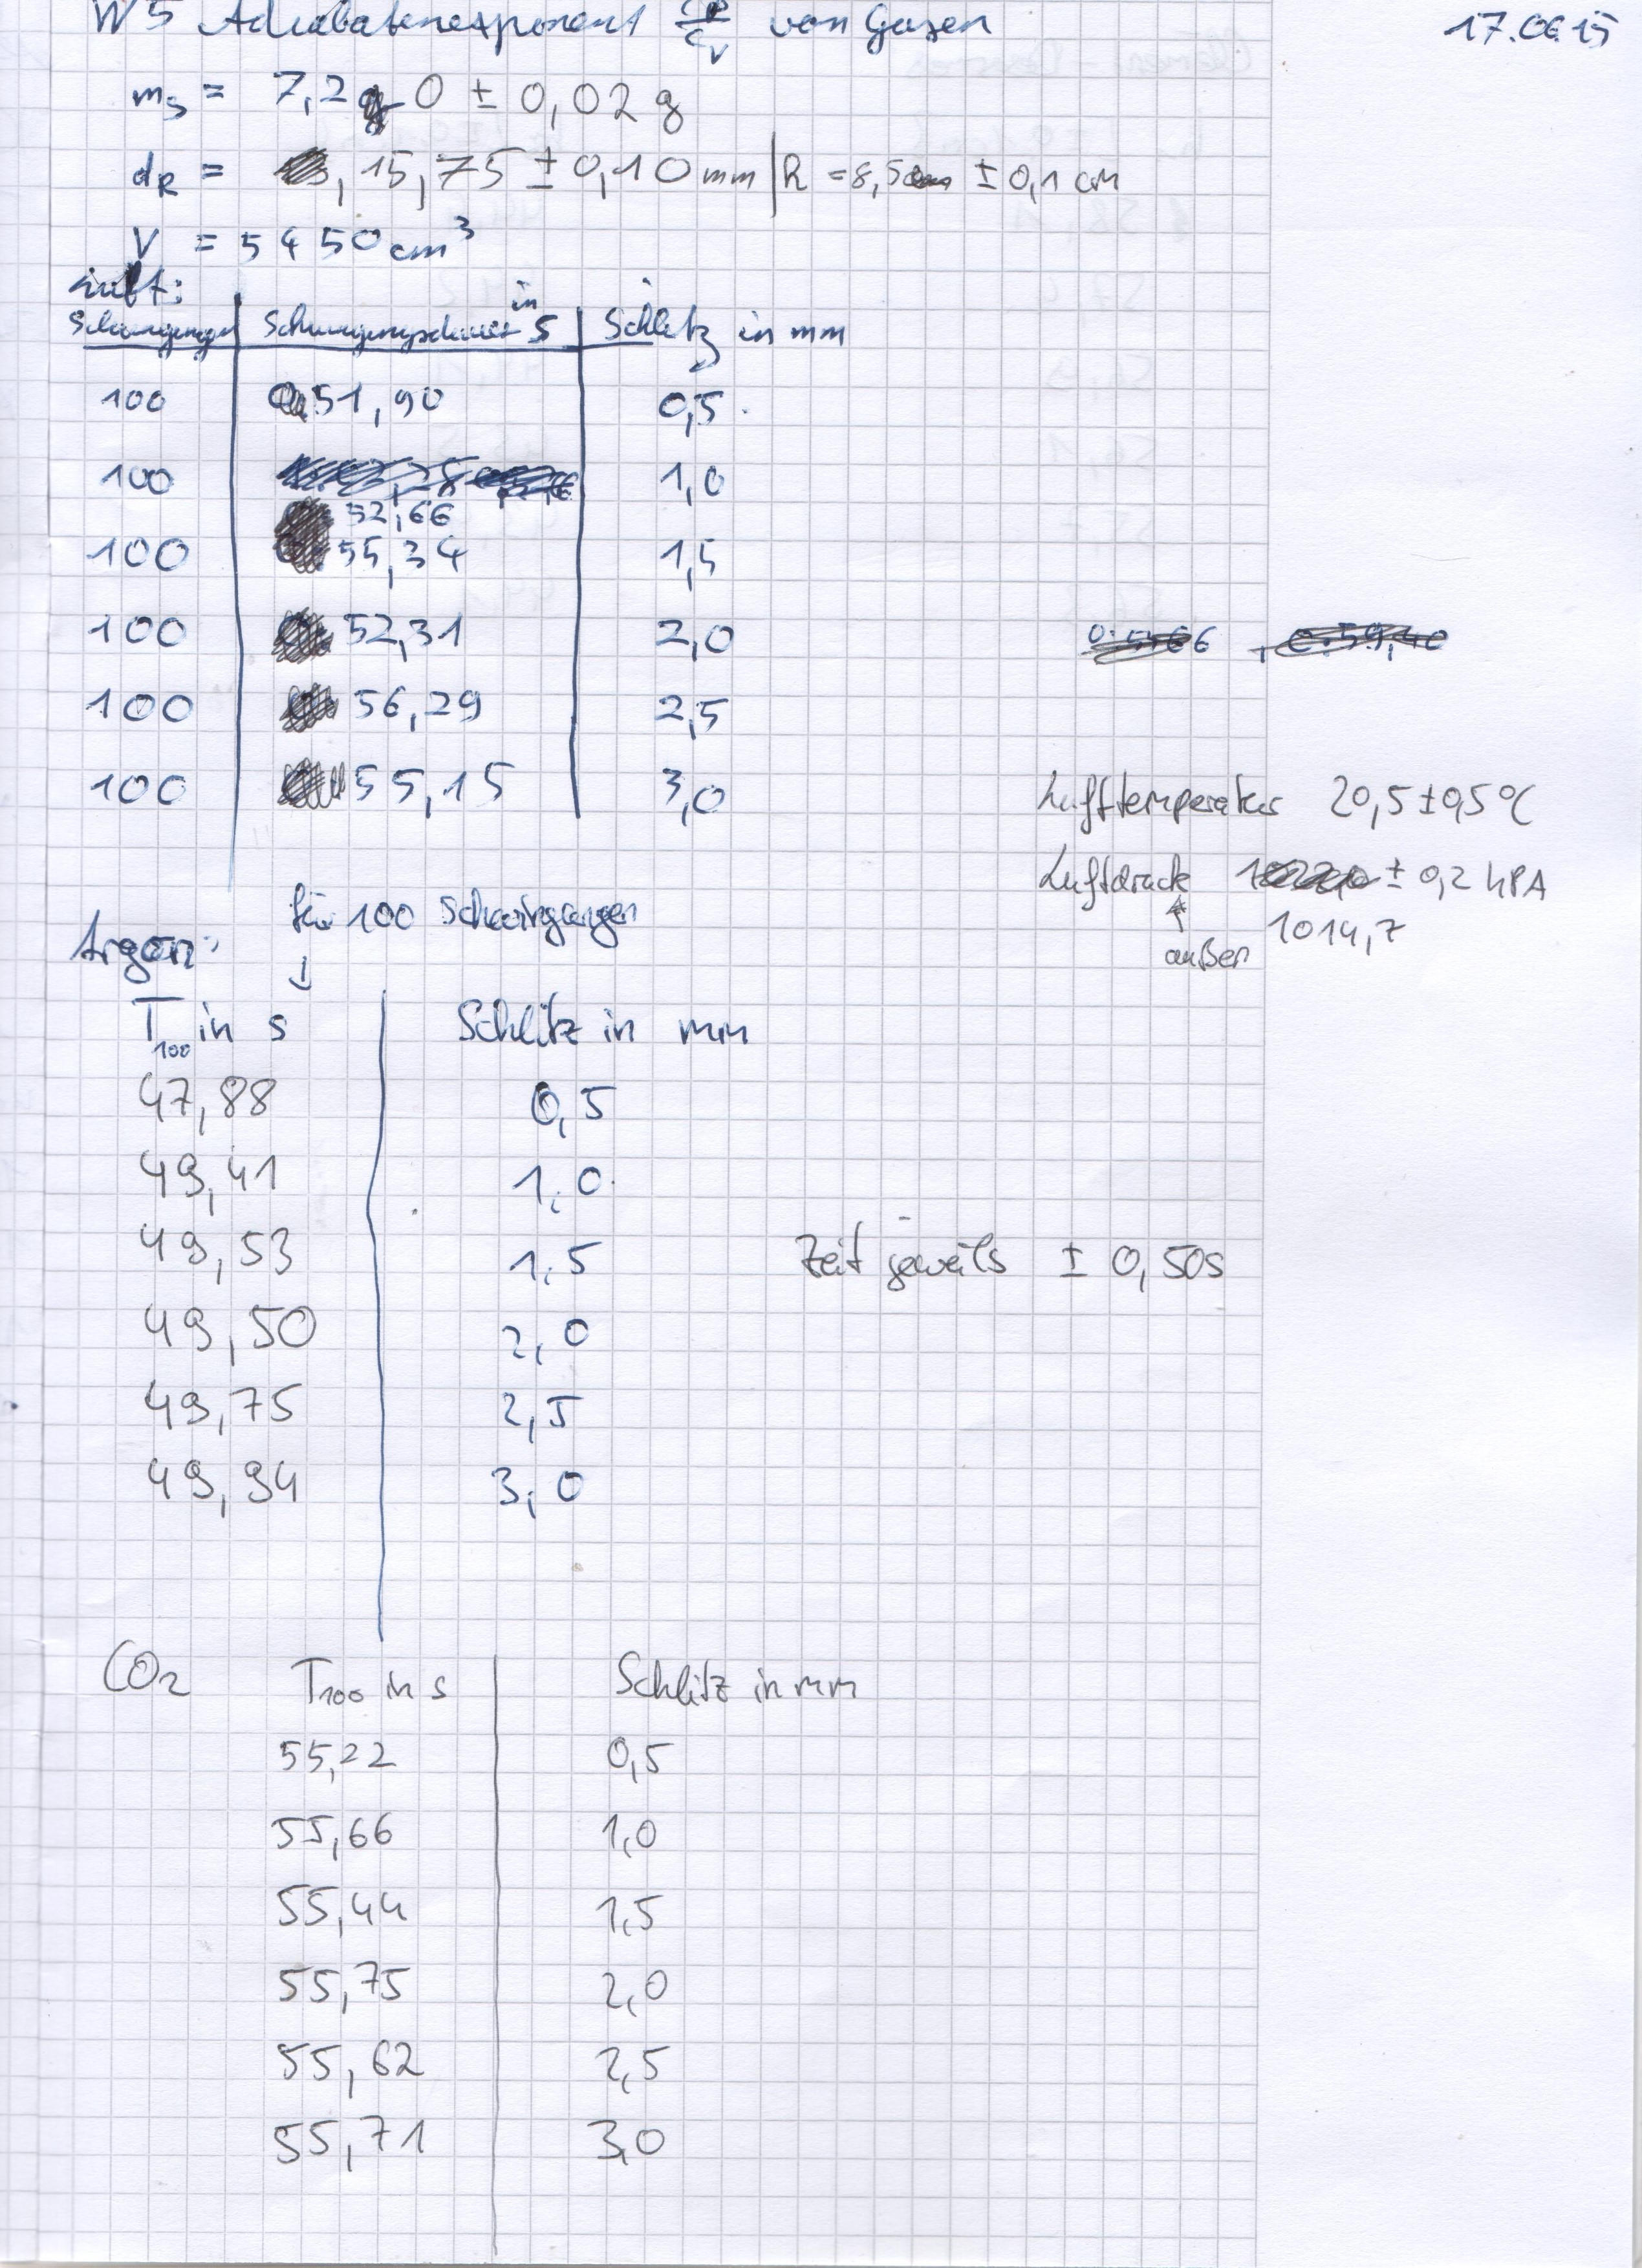 W5 Adiabatenexponent cp/cv von Gasen 17.06.15
mS = 7,20 ± 0,02 g
dR = 15,75 ± 0,10 mm | R = 8,5 ± 0,1 cm
V = 5450 cm³
Luft:
Schwingungen | Schwingungsdauer in s | Schlitz in mm
100 | 51,90 | 0,5
100 | 52,66 | 1,0
100 | 55,34 | 1,5
100 | 52,31 | 2,0
100 | 56,29 | 2,5
100 | 55,15 | 3,0
Lufttemperatur 20,5 ± 0,5 °C
Luftdruck ± 0,2 hPA
↑ außen 1014,7
für 100 Schwingungen
Argon: ↓
T100 in s | Schlitz in mm
47,88 | 0,5
49,41 | 1,0
49,53 | 1,5
Zeit jeweils ± 0,50s
49,50 | 2,0
49,75 | 2,5
49,94 | 3,0
CO2 T100 in s | Schlitz in mm
55,22 | 0,5
55,66 | 1,0
55,44 | 1,5
55,75 | 2,0
55,62 | 2,5
55,71 | 3,0